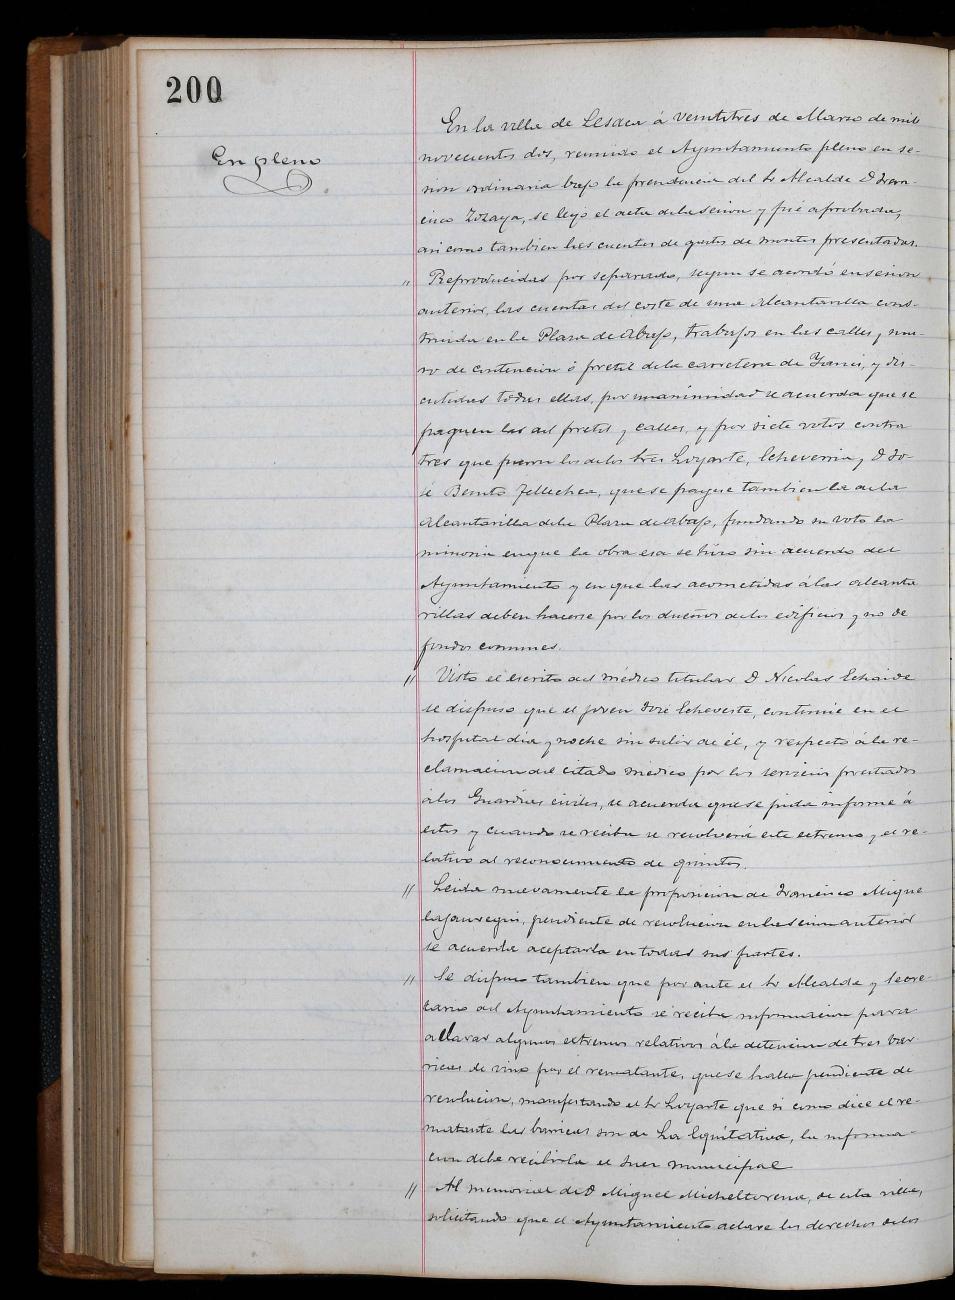 200
En pleno
En la villa de Lesaca á veintitres de Marzo de mil
novecientos dos, reunido el Ayuntamiento pleno en se-
sion ordinaria bajo la presidencia del Sr Alcalde D. Fran-
cisco Zozaya, se leyó el acta de la sesion y fué aprobada,
asi como tambien las cuentas de gastos de montes presentadas.
" Reproducidas por separado, segun se acordó en sesion
anterior, las cuentas del coste de una alcantarilla cons-
truida en la Plaza de abajo, trabajos en las calles, y mu-
ro de contencion ó pretil de la carretera de Yanci, y dis-
cutidas todas ellas, por unanimidad se acuerda que se
paguen las del pretil y calles, y por siete votos contra
tres que fueron los de los Sres Loyarte, Echeverria, y D Jo-
sé Benito Tellechea, que se pague tambien la de la
alcantarilla de la Plaza de abajo, fundando su voto la
minoria en que la obra esa se hizo sin acuerdo del
Ayuntamiento y en que las acometidas á las alcanta
rillas deben hacerse por los dueños de los edificios y no de
fondos comunes.
" Visto el escrito del médico titular D Nicolas Echaide
se dispuso que el joven José Echeveste, continúe en el
hospital dia y noche sin salir de él, y respecto á la re-
clamacion del citado médico por los servicios prestados
á los Guardias civiles, se acuerda que se pida informe á
estos y cuando se reciba se resolverá este extremo y el re-
lativo al reconocimiento de quintos.
" Leida nuevamente la proposicion de Francisco Migue
lajauregui, pendiente de resolucion en la sesion anterior
se acuerda aceptarla en todas sus partes.
" Se dispuso tambien que por ante el Sr Alcalde y Secre-
tario del Ayuntamiento se reciba informacion para
aclarar algunos extremos relativos á la detencion de tres bar
ricas de vino por el rematante, que se halla pendiente de
resolucion, manifestando el Sr Loyarte que si como dice el re-
matante las barricas son de La Equitativa, la informa-
cion debe recibirla el Juez municipal
" Al memorial de D Miguel Micheltorena, de esta villa,
solicitando que el Ayuntamiento aclare los derechos de los